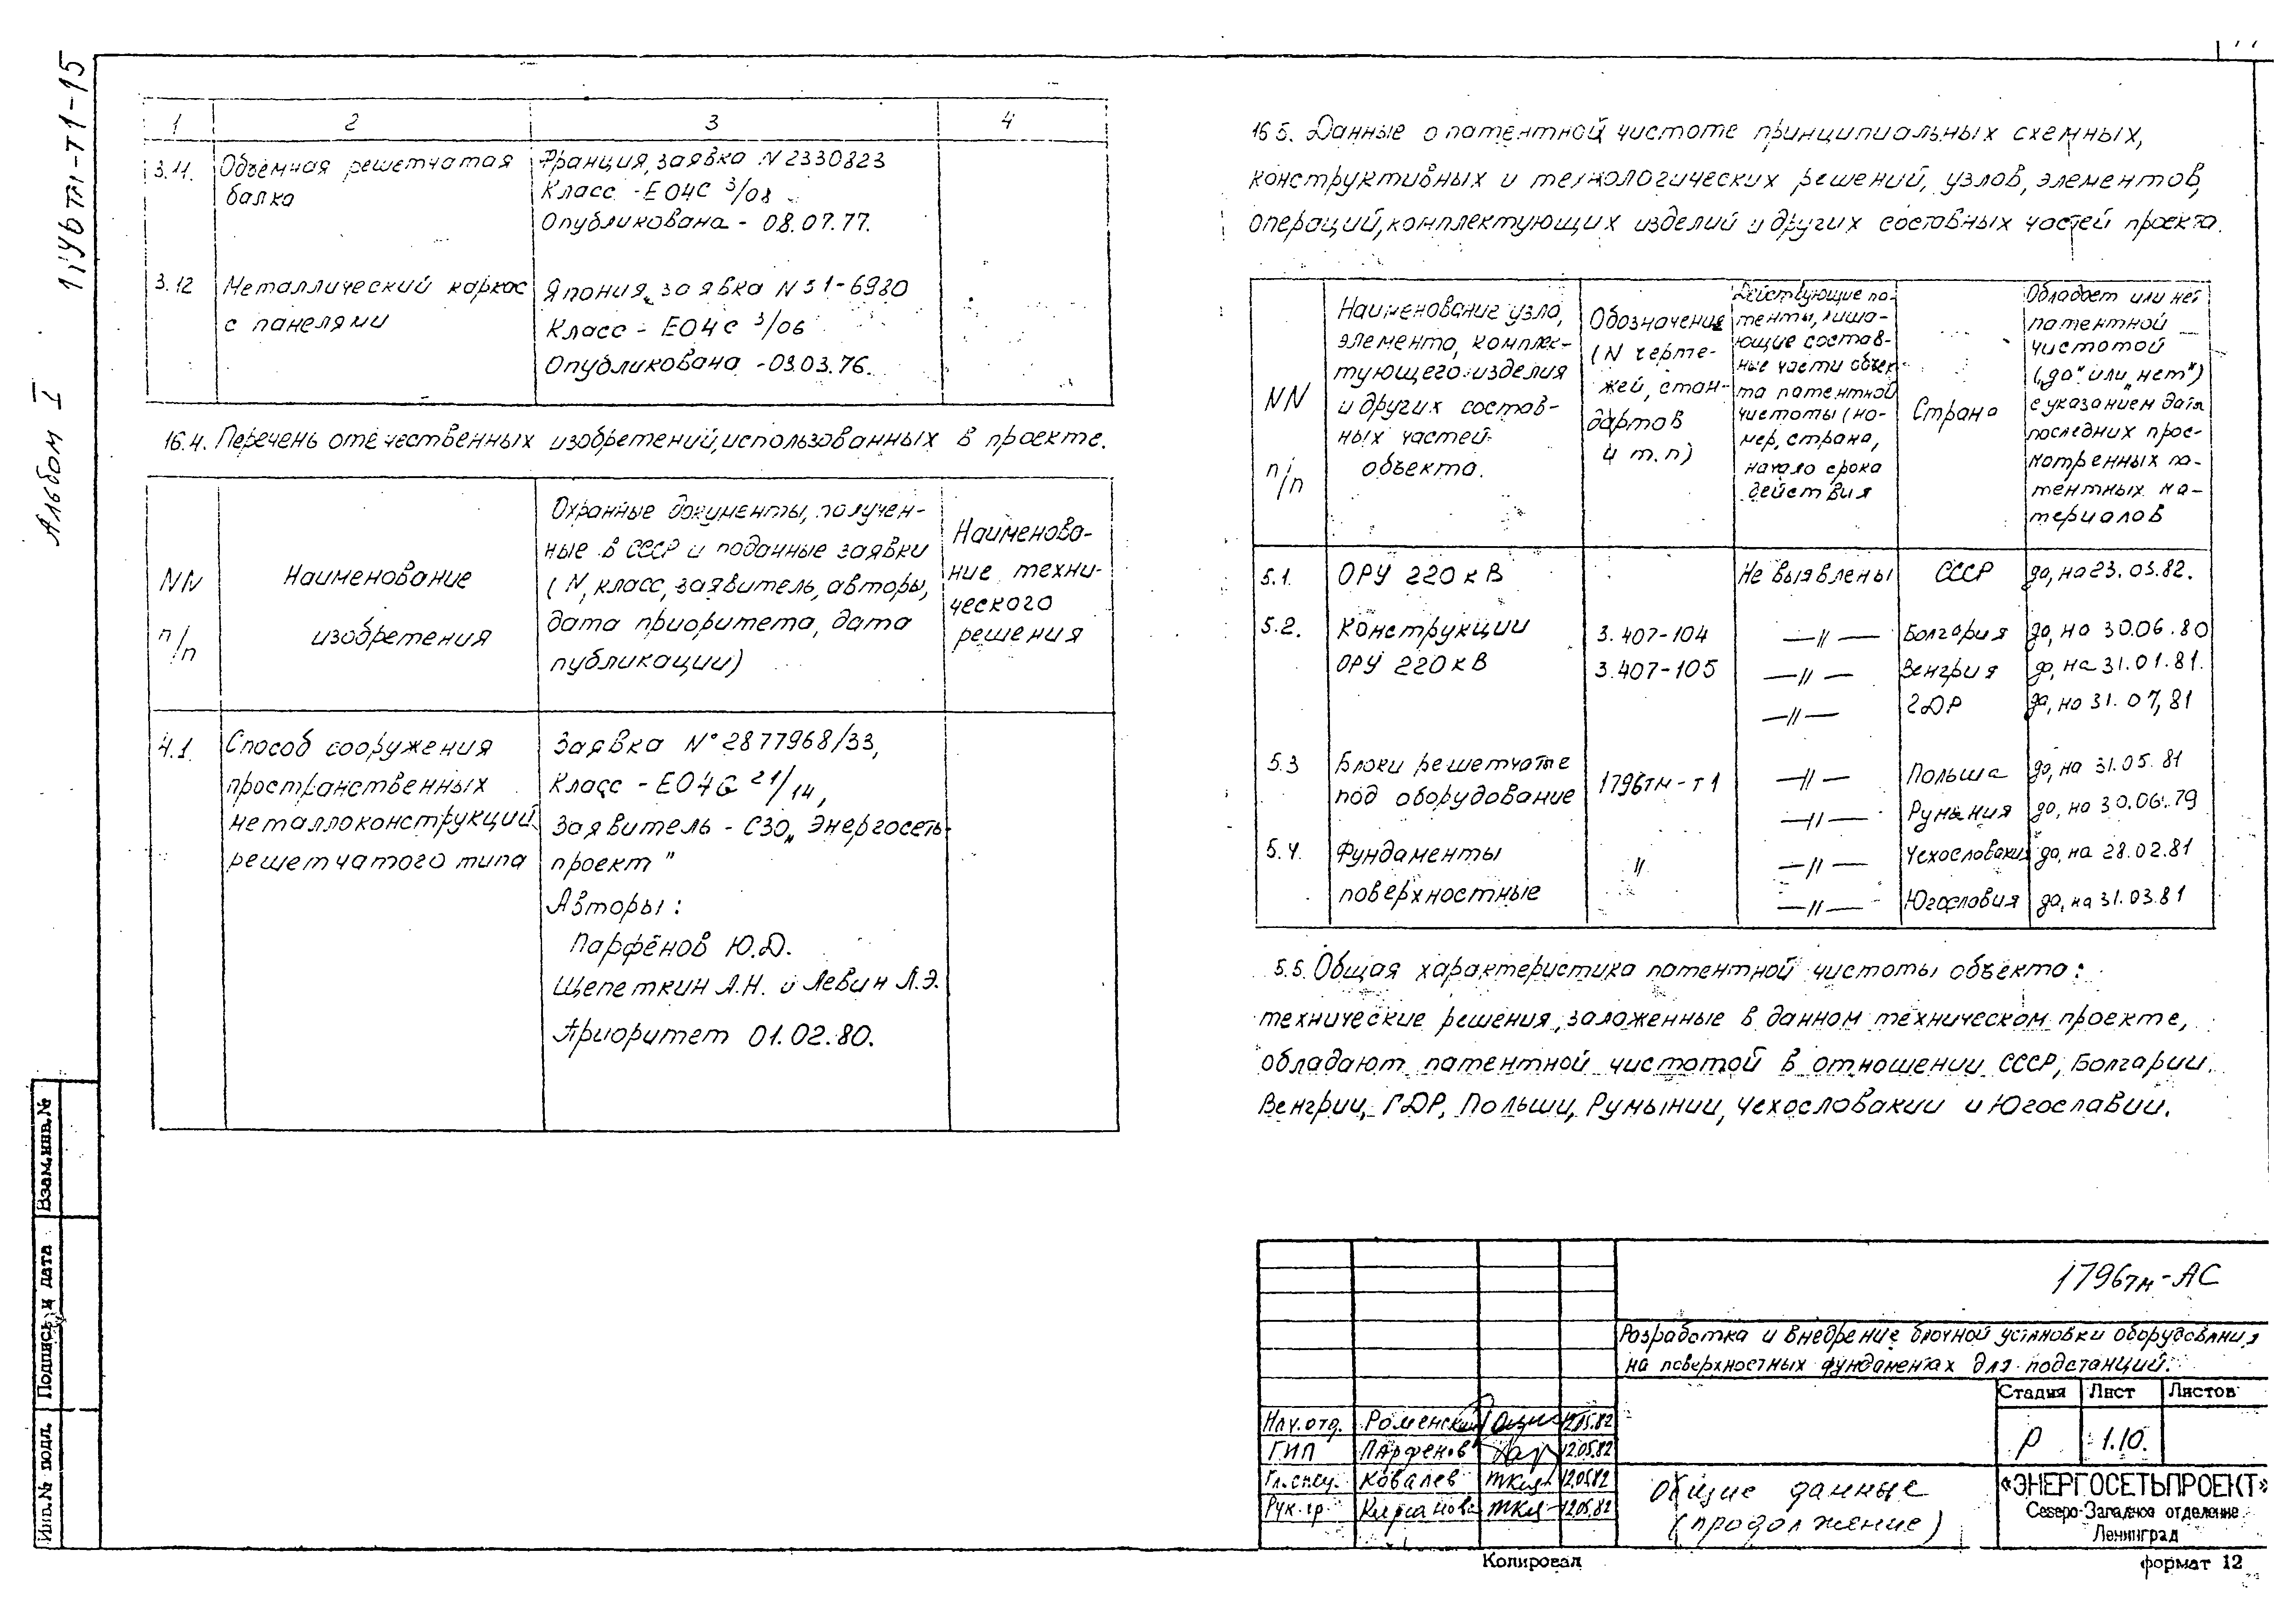 Альбом I
1 2 3 4
3.11. Объёмная решетчатая балка
Франция, заявка N 2330823
Класс - E04C 3/08
Опубликована - 08.07.77.
3.12 Металлический каркас с панелями
Япония, заявка N 51-6980
Класс - E04C 3/06
Опубликована - 03.03.76.
16.4. Перечень отечественных изобретений, использованных в проекте.
NN п/п
Наименование изобретения
Охранные документы, получен-
ные в СССР и поданные заявки
( N, класс, заявитель, авторы,
дата приоритета, дата
публикации)
Наименова-
ние техни-
ческого
решения
4.1. Способ сооружения
пространственных
металлоконструкций
решетчатого типа
Заявка N° 2877968/33,
Класс - E04G 21/14,
Заявитель - СЗО „Энергосеть-
проект"
Авторы:
Парфёнов Ю.Д.
Щепеткин А.Н. и Левин Л.Э.
Приоритет 01.02.80.
16.5. Данные о патентной чистоте принципиальных схемных,
конструктивных и технологических решений, узлов, элементов,
операций, комплектующих изделий и других составных частей проекта.
NN п/п
Наименование узла,
элемента, комплек-
тующего изделия
и других состав-
ных частей
объекта.
Обозначение
( N черте-
жей, стан-
дартов
и т.п)
Действующие па-
тенты, лиша-
ющие состав-
ные части объек-
та патентной
чистоты (но-
мер, страна,
начало срока
действия
Страна
Обладает или нет
патентной
чистотой
(„да" или „нет")
с указанием даты
последних прос-
мотренных па-
тентных ма-
териалов
5.1. ОРУ 220 кВ Не выявлены СССР да, на 23.03.82.
5.2. Конструкции 3.407-104 —〃— Болгария да, на 30.06.80
ОРУ 220 кВ 3.407-105 —〃— Венгрия да, на 31.01.81.
—〃— ГДР да, на 31.07,81
5.3 Блоки решетчатые —〃— Польша да, на 31.05.81
под оборудование 1796тм-т1 —〃— Румыния да, на 30.06.79
5.4. Фундаменты 〃 —〃— Чехословакия да, на 28.02.81
поверхностные —〃— Югославия да, на 31.03.81
5.5. Общая характеристика патентной чистоты объекта:
технические решения, заложенные в данном техническом проекте,
обладают патентной чистотой в отношении СССР, Болгарии,
Венгрии, ГДР, Польши, Румынии, Чехословакии и Югославии.
Взам.инв.№
Подпись и дата
Инв.№ подл.
1796тм-АС
Разработка и внедрение блочной установки оборудования
на поверхностных фундаментах для подстанций.
Стадия Лист Листов
Р 1.10.
Нач.отд. Роменский 12.05.82
ГИП Парфенов 12.05.82
Гл.спец. Ковалев 12.05.82
Рук.гр. Кирсанова 12.05.82
Общие данные
(продолжение)
«ЭНЕРГОСЕТЬПРОЕКТ»
Северо-Западное отделение
Ленинград
Копировал
формат 12